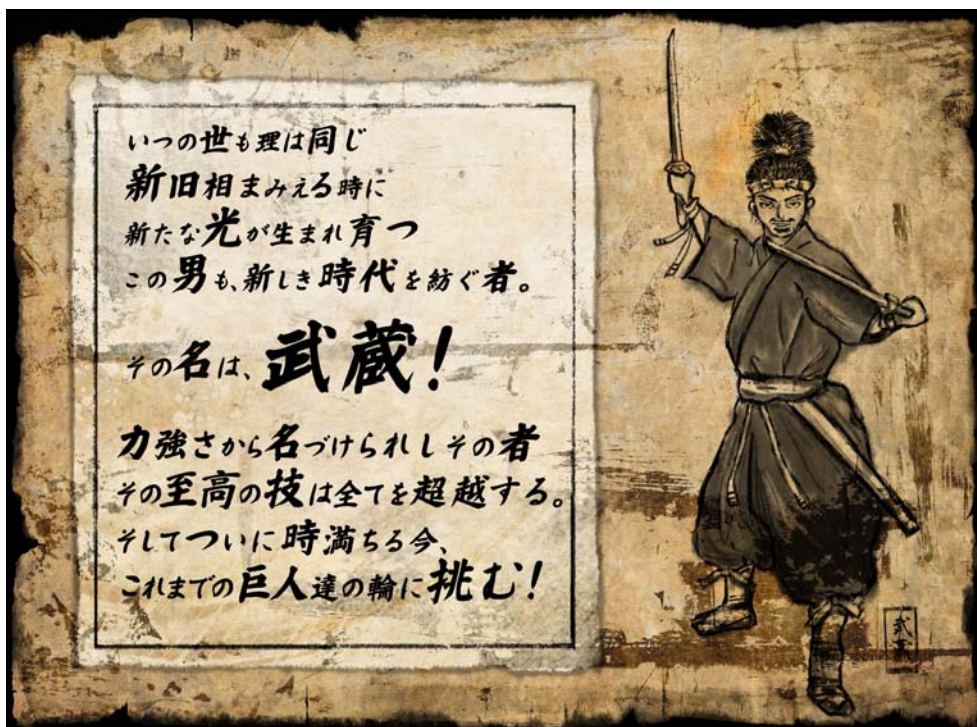 いつの世も理は同じ
新旧相まみえる時に
新たな光が生まれ育つ
この男も、新しき時代を紡ぐ者。
その名は、武蔵!
力強さから名づけられしその者
その至高の技は全てを超越する。
そしてついに時満ちる今、
これまでの巨人達の輪に挑む!
武蔵